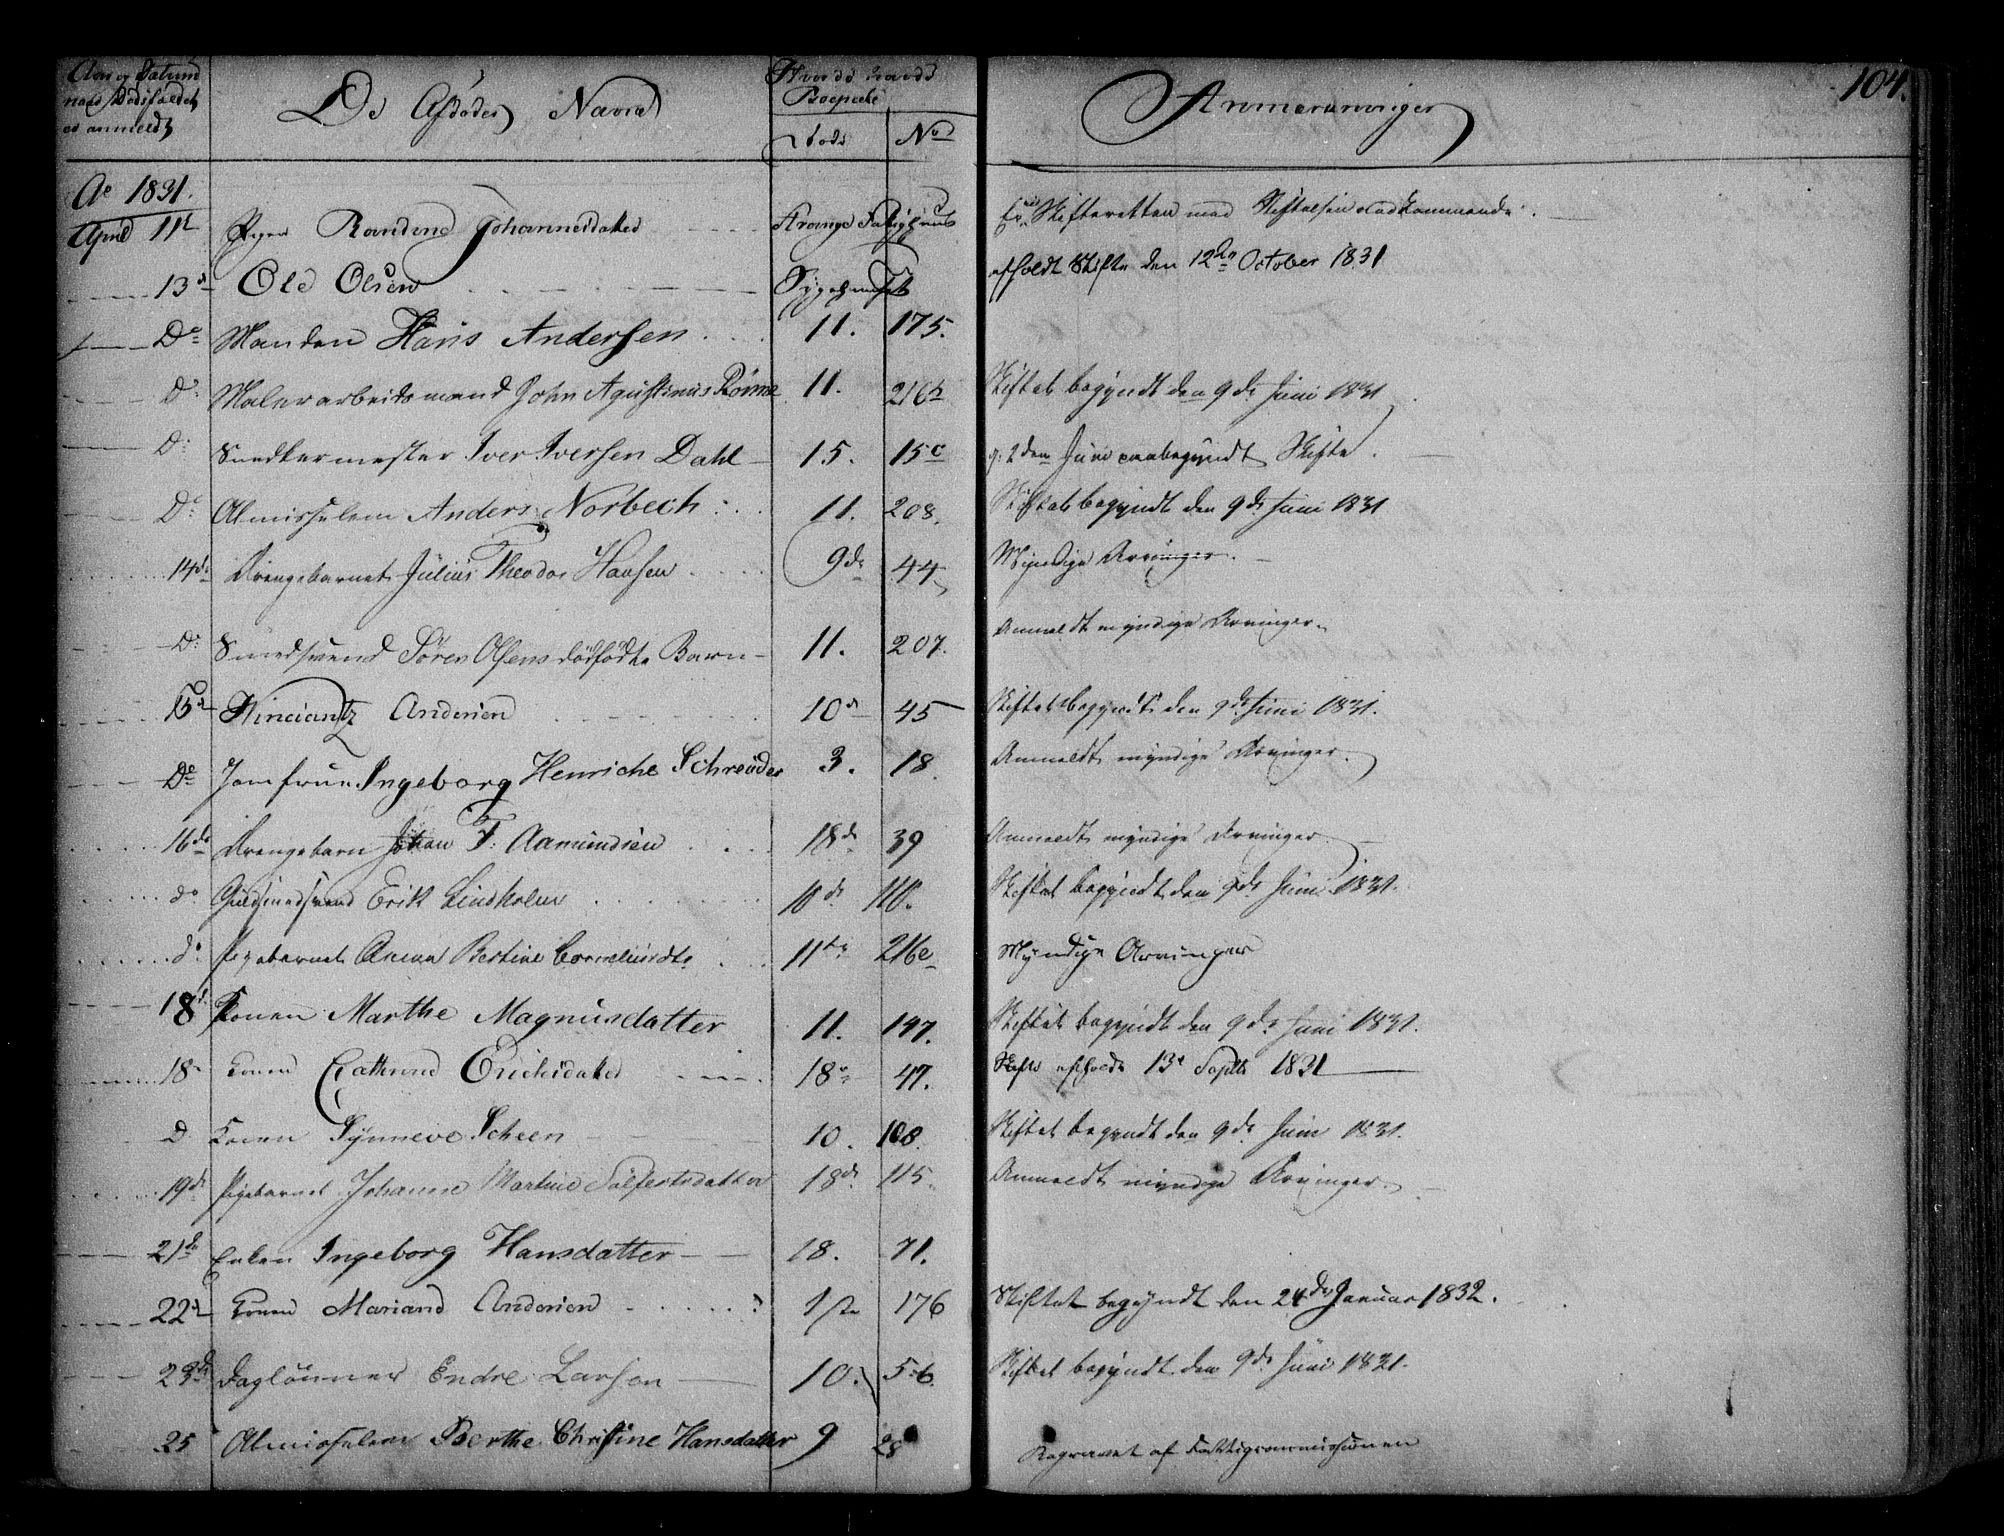 Aar og Datum
naar Dødsfaldet
er anmeldt
De Afdødes Navne
Hvor de havde
Boepæle
Rode
No
Anmærkninger
104.
Ao 1831.
April 11te Pigen Randine Johannesdatter Prange Fattighuus Skifteretten med Stiftelsen vedkommende.
13de Ole Olsen Sygehuuset afholdt Skifte den 12te October 1831
Do Manden Hans Andersen 11. 175.
Do Malerarbeidsmand John Agustinus Rönne 11. 216b Skiftet begyndt den 9de Juni 1831
Do Snedkermester Iver Iversen Dahl 15. 15c d: 2den Juni paabegyndt Skifte.
Do Almisselem Anders Norbech 11. 208. Skiftet begyndt den 9de Juni 1831
14de Drengebarnet Julius Theodor Hansen 9de 44 Myndige Arvinger.
Do Smedsvend Sören Olsens dödfödte Barn 11. 207. Anmeldt myndige Arvinger.
15de Vinciantz Andersen 10de 45 Skiftet begyndt den 9de Juni 1831.
Do Jomfrue Ingeborg Henriche Schreuder 3. 18. Anmeldt myndige Arvinger.
16de Drengebarn Johan F. Aamundsen 18de 39 Anmeldt myndige Arvinger
do Guldsmedsvend Erik Lindholm 10de 110. Skiftet begyndt den 9de Juni 1831.
do Pigebarnet Anna Bertine Corneliusdtr 11te 216e Myndige Arvinger
18d. Konen Marthe Magnusdatter 11. 147. Skiftet begyndt den 9de Juni 1831.
18de Konen Cathrine Erichsdatter 18de 47. Skifte afholdt 13de Septbr 1831
D Konen Synneve Scheen 10. 108. Skiftet begyndt den 9de Juni 1831.
19de Pigebarnet Johanne Martine Solfestsdatter 18de 115. Anmeldt myndige Arvinger.
21de Enken Ingeborg Hansdatter 18. 71.
22de Konen Mariane Andersen 1ste 176 Skiftet begyndt den 24de Januar 1832.
23de Daglönner Endre Larsen 10. 56. Skiftet begyndt den 9de Juni 1831.
25 Almisselem Berthe Christine Hansdatter 9 28 Begravet af Fattigcommissionen